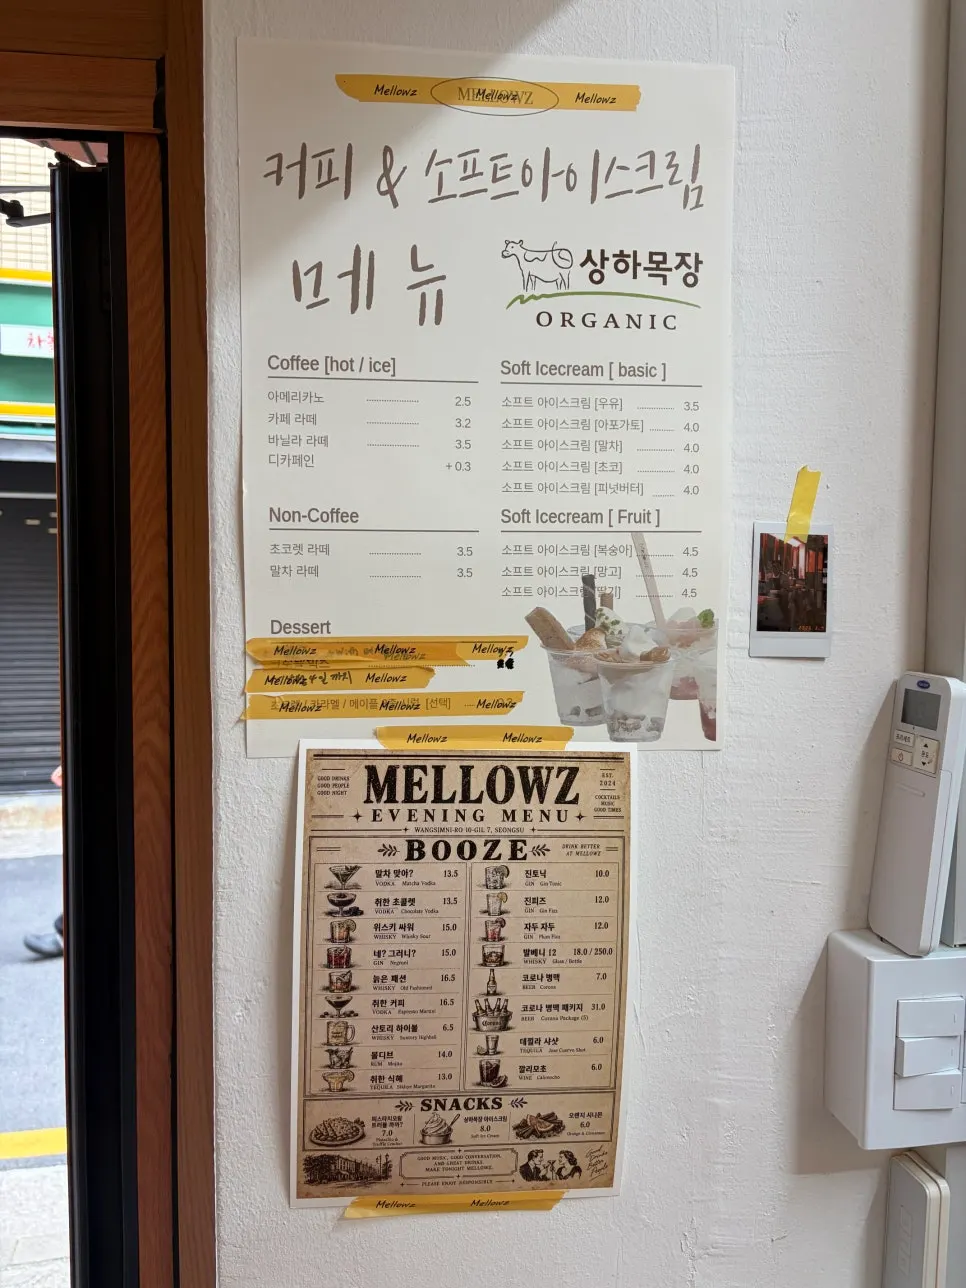 Mellowz MELLOWZ Mellowz Mellowz
커피 & 소프트아이스크림
메뉴
상하목장
ORGANIC
Coffee [hot / ice]
아메리카노 2.5
카페 라떼 3.2
바닐라 라떼 3.5
디카페인 + 0.3
Non-Coffee
초코렛 라떼 3.5
말차 라떼 3.5
Dessert
Soft Icecream [ basic ]
소프트 아이스크림 [우유] 3.5
소프트 아이스크림 [아포가토] 4.0
소프트 아이스크림 [말차] 4.0
소프트 아이스크림 [초코] 4.0
소프트 아이스크림 [피넛버터] 4.0
Soft Icecream [ Fruit ]
소프트 아이스크림 [복숭아] 4.5
소프트 아이스크림 [망고] 4.5
소프트 아이스크림 [딸기] 4.5
Mellowz Mellowz Mellowz
Mellowz 까지 Mellowz
Mellowz Mellowz Mellowz
[선택]
Mellowz Mellowz
GOOD DRINKS
GOOD PEOPLE
GOOD NIGHT
MELLOWZ
EST.
2024
COCKTAILS
MUSIC
GOOD TIMES
EVENING MENU
WANGSIMNI-RO 10-GIL 7, SEONGSU
BOOZE
DRINK BETTER
AT MELLOWZ
말차 맞아? 13.5
VODKA Matcha Vodka
취한 초콜렛 13.5
VODKA Chocolate Vodka
위스키 싸워 15.0
WHISKY Whisky Sour
네? 그러니? 15.0
GIN Negroni
늙은 패션 16.5
WHISKY Old Fashioned
취한 커피 16.5
VODKA Espresso Martini
산토리 하이볼 6.5
WHISKY Suntory Highball
몰디브 14.0
RUM Mojito
취한 식혜 13.0
TEQUILA Sikhye Margarita
진토닉 10.0
GIN Gin Tonic
진피즈 12.0
GIN Gin Fizz
자두 자두 12.0
GIN Plum Fizz
발베니 12 18.0 / 250.0
WHISKY Glass / Bottle
코로나 병맥 7.0
BEER Corona
코로나 병맥 패키지 31.0
BEER Corona Package (5)
데낄라 샤샷 6.0
TEQUILA Jose Cuervo Shot
깔리모초 6.0
WINE Calimocho
SNACKS
7.0
상하목장 아이스크림
8.0
Soft Ice Cream
오렌지 시나몬
6.0
Orange & Cinnamon
GOOD MUSIC, GOOD CONVERSATION,
AND GREAT DRINKS.
MAKE TONIGHT MELLOWZ.
PLEASE ENJOY RESPONSIBLY
Good
Drinks
Better
People
Mellowz Mellowz